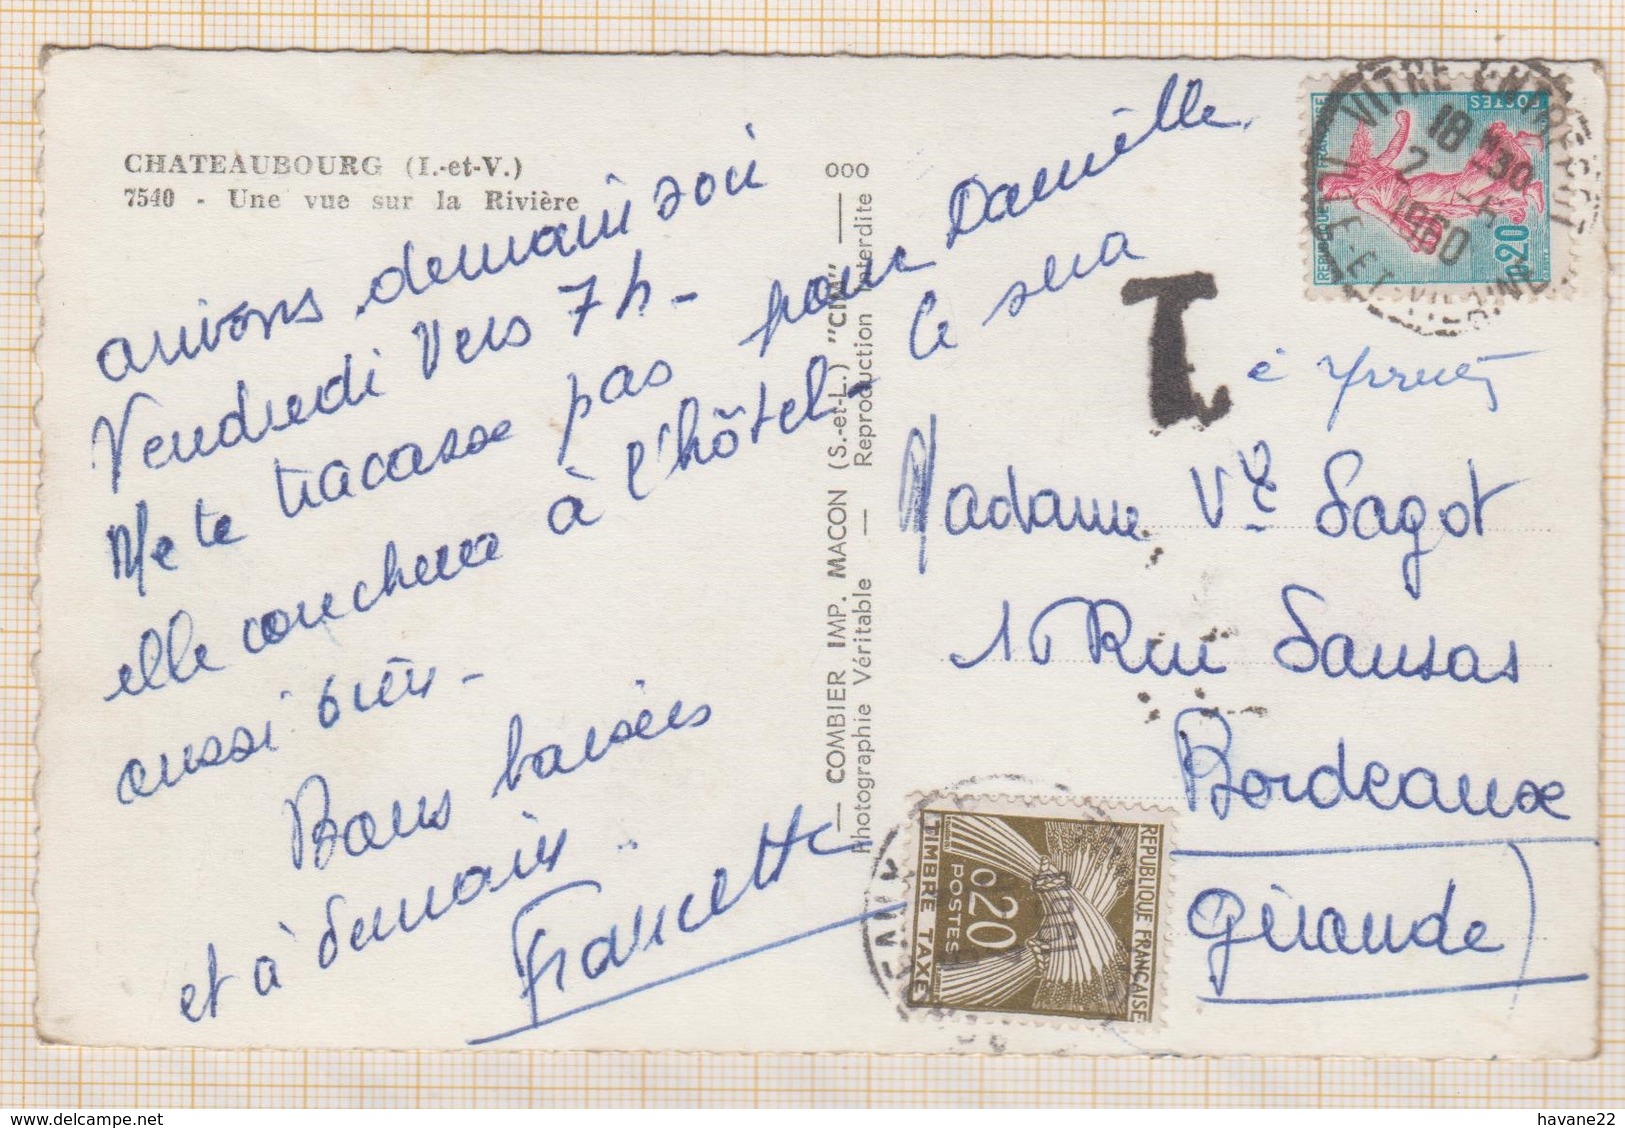 CHATEAUBOURG (I.-et-V.)
7540 - Une vue sur la Rivière
arrivons demain soir
Vendredi vers 7h -
Ne te tracasse pas pour Danielle
elle couchera à l'hôtel - ce sera
aussi bien -
Bons baisers
et à demain ..
Francette
— COMBIER IMP. MACON (S.-et-L.) "CIM" — 000
Photographie Véritable — Reproduction Interdite
VITRE ENTREPOT
18 H 30
2 -
1960
ILLE-ET-VILAINE
REPUBLIQUE FRANÇAISE
POSTES
0,20
T
Madame Vve Sagot
Rue Sansas
Bordeaux
(Gironde)
REPUBLIQUE FRANÇAISE
0,20
POSTES
TIMBRE TAXE
delcampe.net
havane22